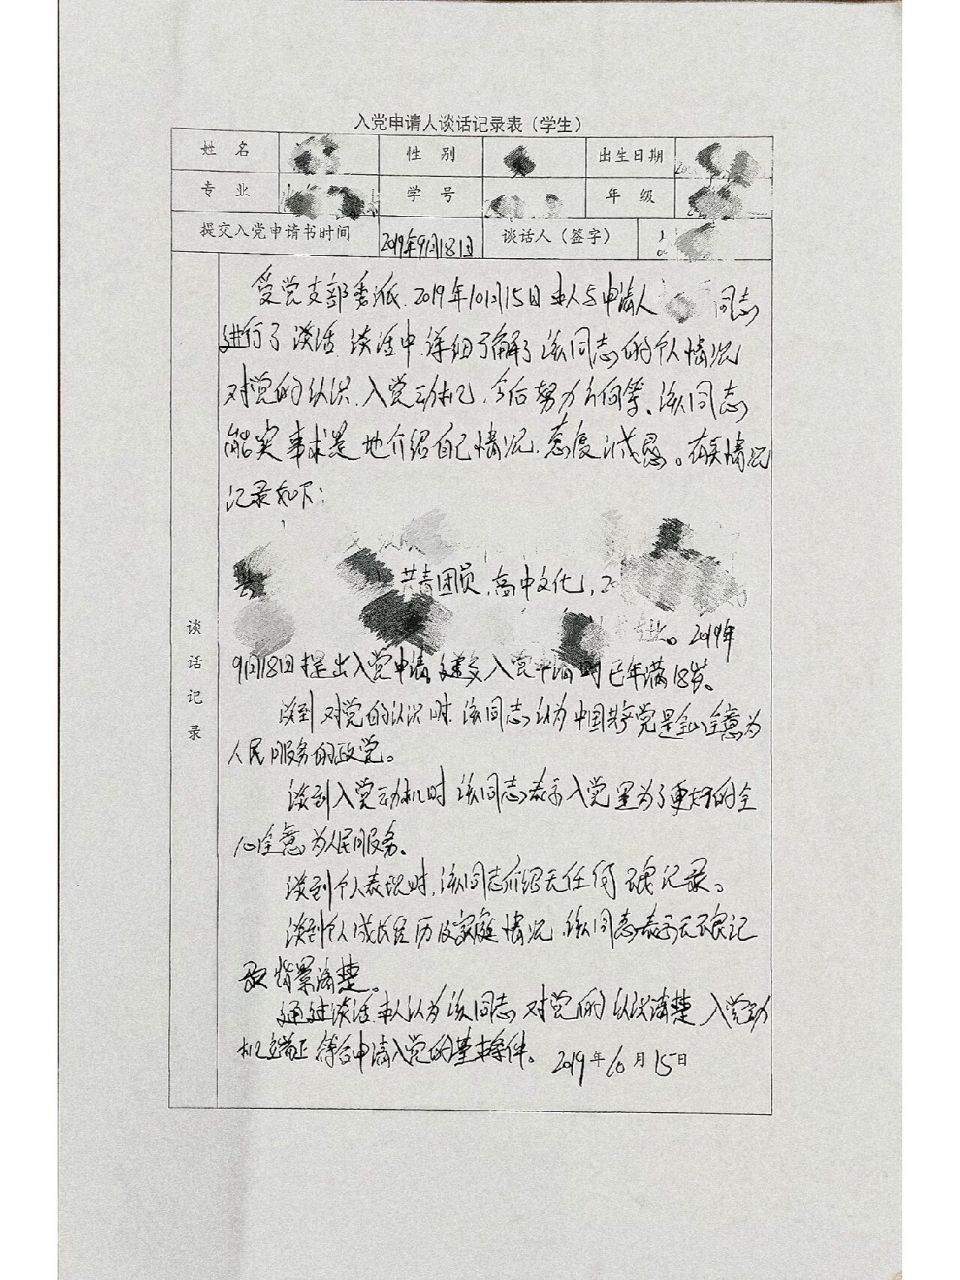 入党申请人谈话记录表（学生）
姓 名 性 别 出生日期
专 业 学 号 年 级
提交入党申请书时间 2019年9月18日 谈话人（签字）
谈话记录
受党支部委派，2019年10月15日本人与申请人 同志
进行了谈话，谈话中，详细了解了该同志的个人情况
对党的认识、入党动机、今后努力方向等，该同志
能实事求是地介绍自己情况，态度诚恳。有关情况
记录如下：
共青团员，高中文化，2
专业。2019年
9月18日提出入党申请，递交入党申请时已年满18岁。
谈到对党的认识时，该同志认为中国共产党是全心全意为
人民服务的政党。
谈到入党动机时，该同志表示入党是为了更好的全
心全意为人民服务。
谈到个人表现时，该同志介绍无任何不良记录。
谈到个人成长经历及家庭情况，该同志表示无不良记
录，背景清楚。
通过谈话，本人认为该同志，对党的认识清楚，入党动
机端正，符合申请入党的基本条件。 2019年10月15日